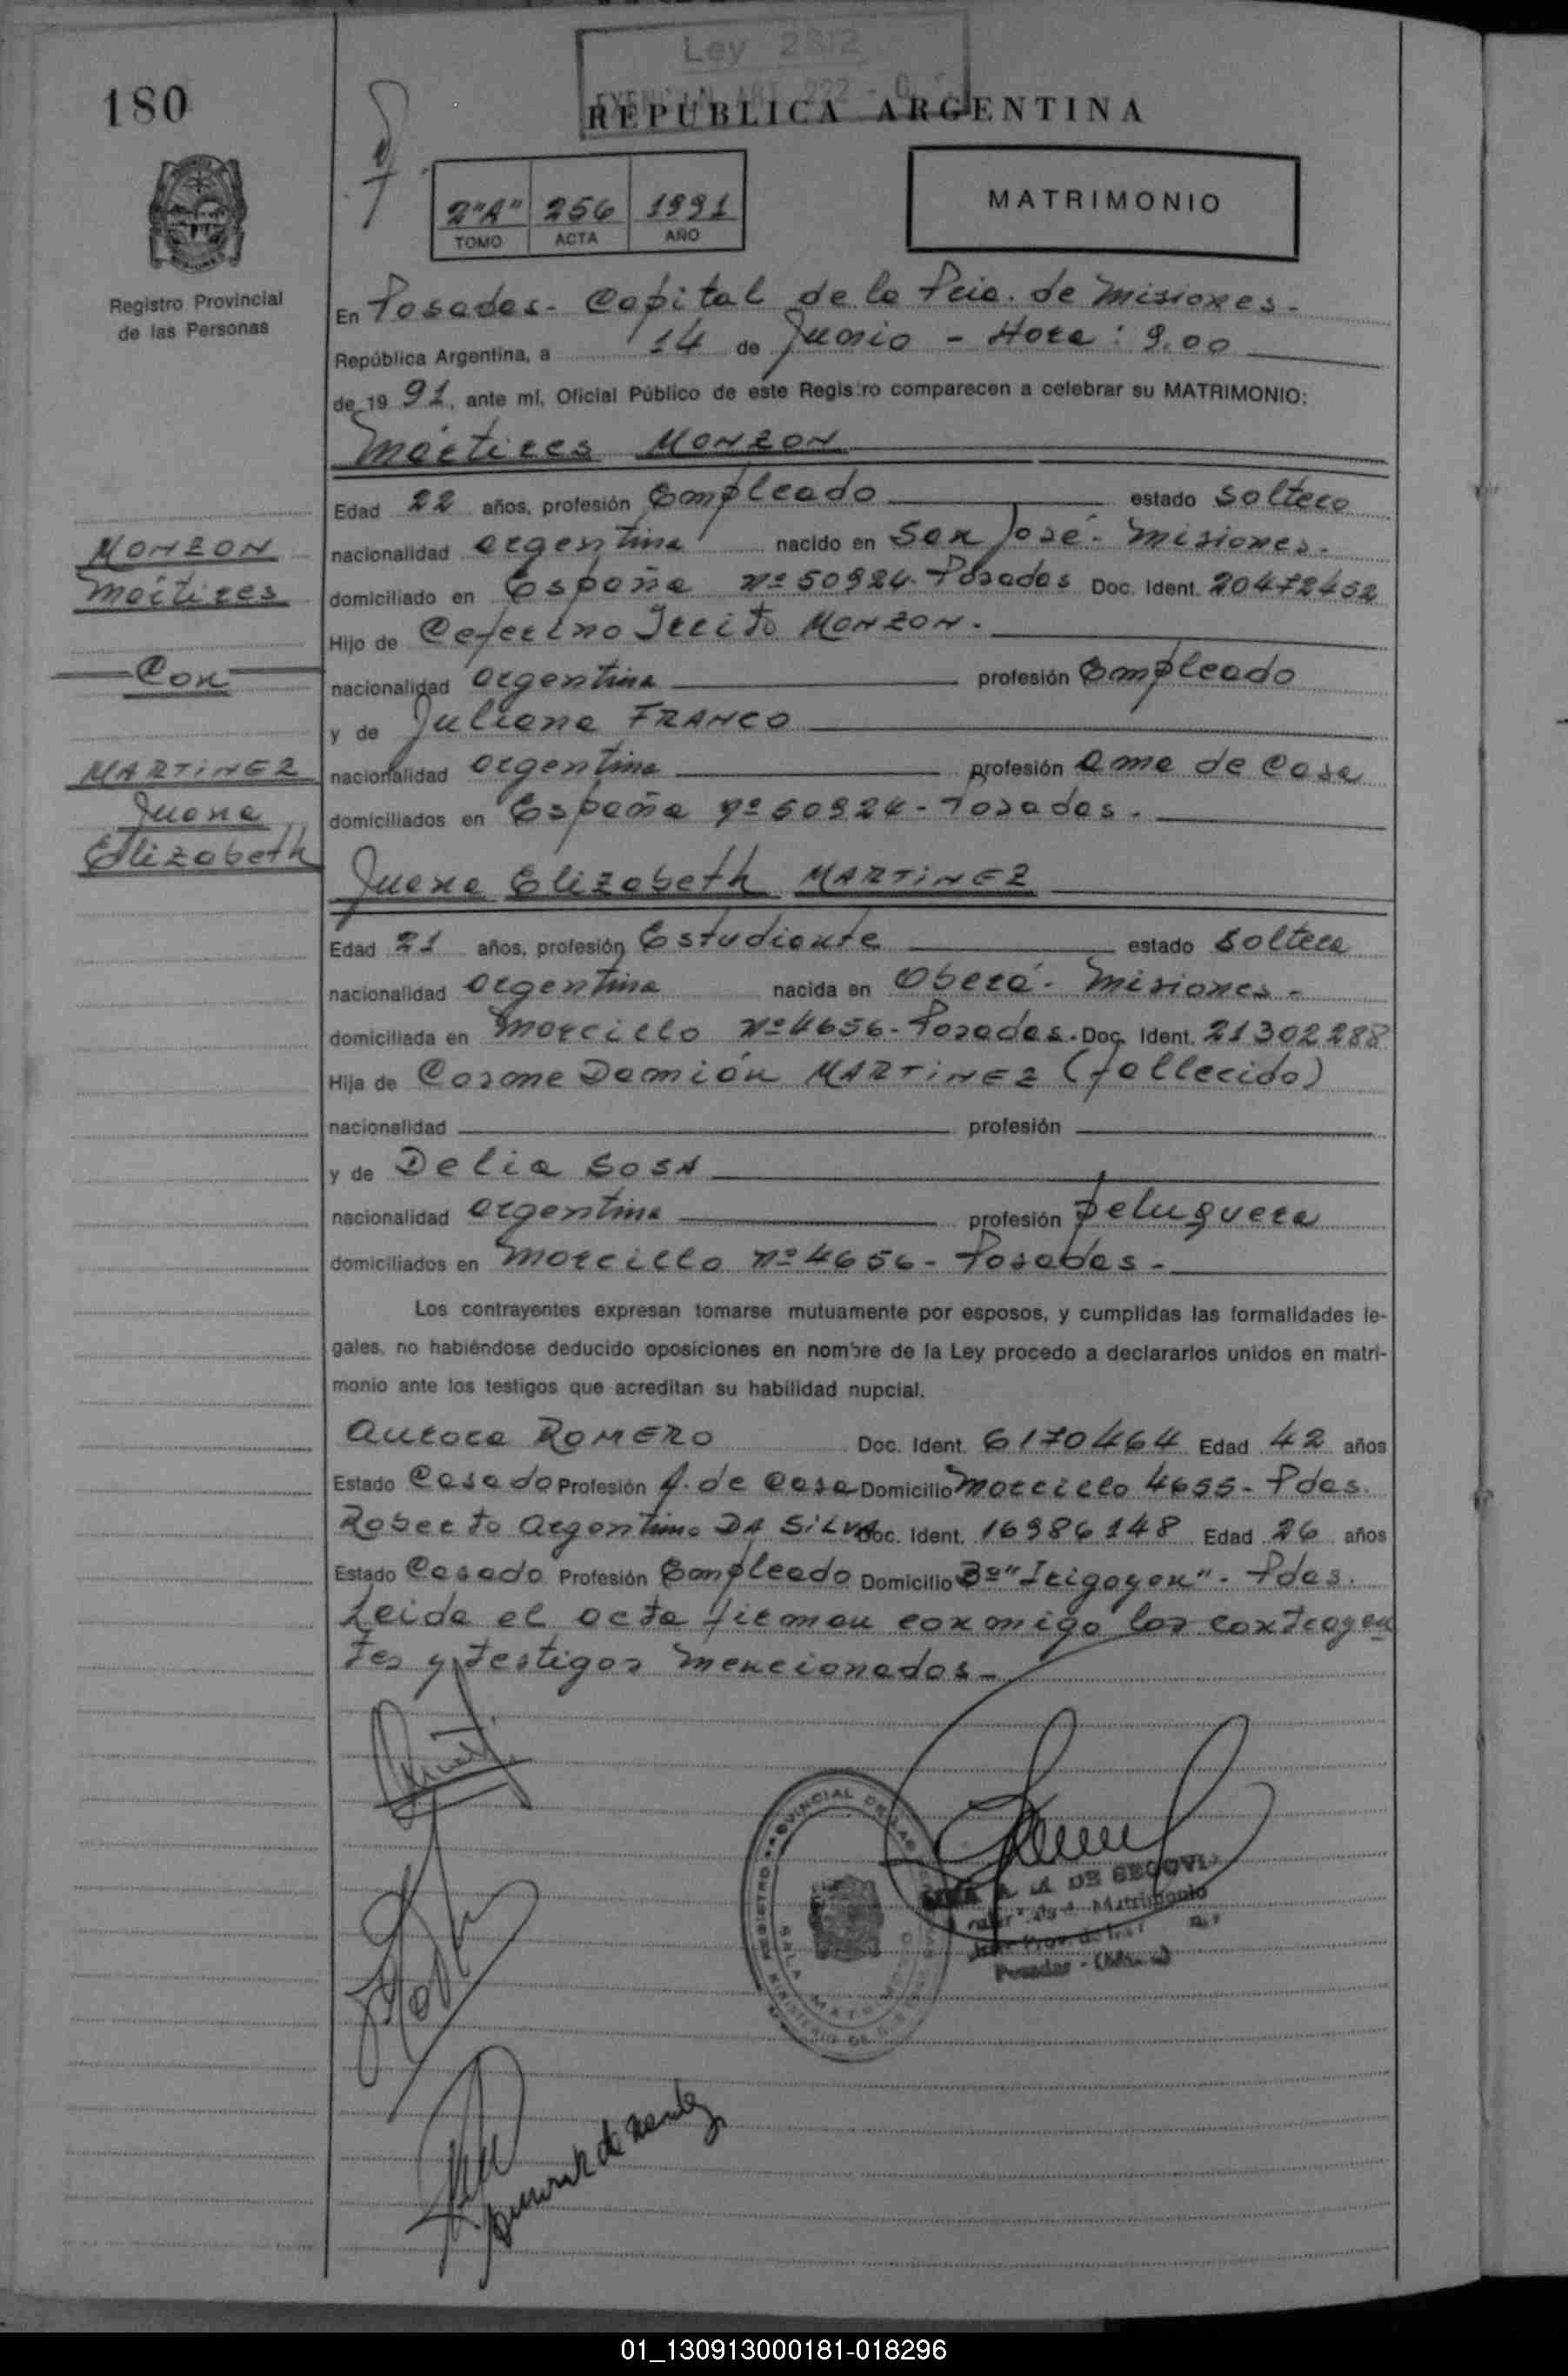 Ley 2812
180
REPUBLICA ARGENTINA
2"A" 256 1991
TOMO ACTA AÑO
MATRIMONIO
Registro Provincial
de las Personas
En Posadas - Capital de la Pcia. de Misiones -
República Argentina, a 14 de Junio - Hora: 9.00
de 19 91, ante mí, Oficial Público de este Registro comparecen a celebrar su MATRIMONIO:
Mártires MONZON
Edad 22 años, profesión Empleado estado soltero
nacionalidad argentina nacido en San José - Misiones -
domiciliado en España Nº 50924 - Posadas Doc. Ident. 20472452
Hijo de Ceferino MONZON.
nacionalidad argentina profesión Empleado
y de Juliana FRANCO
nacionalidad argentina profesión ama de casa
domiciliados en España Nº 50924 - Posadas.
MONZON
Mártires
Con
MARTINEZ
Juana
Elizabeth
Juana Elizabeth MARTINEZ
Edad 21 años, profesión Estudiante estado soltera
nacionalidad argentina nacida en Oberá - Misiones -
domiciliada en Morcillo Nº 4656 - Posadas. Doc. Ident. 21302288
Hija de Cosme Damián MARTINEZ (fallecido)
nacionalidad profesión
y de Delia SOSA
nacionalidad argentina profesión peluquera
domiciliados en Morcillo Nº 4656 - Posadas -
Los contrayentes expresan tomarse mutuamente por esposos, y cumplidas las formalidades le-
gales, no habiéndose deducido oposiciones en nombre de la Ley procedo a declararlos unidos en matri-
monio ante los testigos que acreditan su habilidad nupcial.
Aurora ROMERO Doc. Ident. 6170464 Edad 42 años
Estado Casado Profesión A. de Casa Domicilio Morcillo 4655 - Pdas.
Roberto Argentino DA SILVA Doc. Ident. 16986148 Edad 26 años
Estado Casado Profesión Empleado Domicilio Bº "Irigoyen" - Pdas.
Leida el acta firman conmigo los contrayen
tes y testigos mencionados -
DE SEGOVIA
Matrimonio
Posadas -
01_130913000181-018296